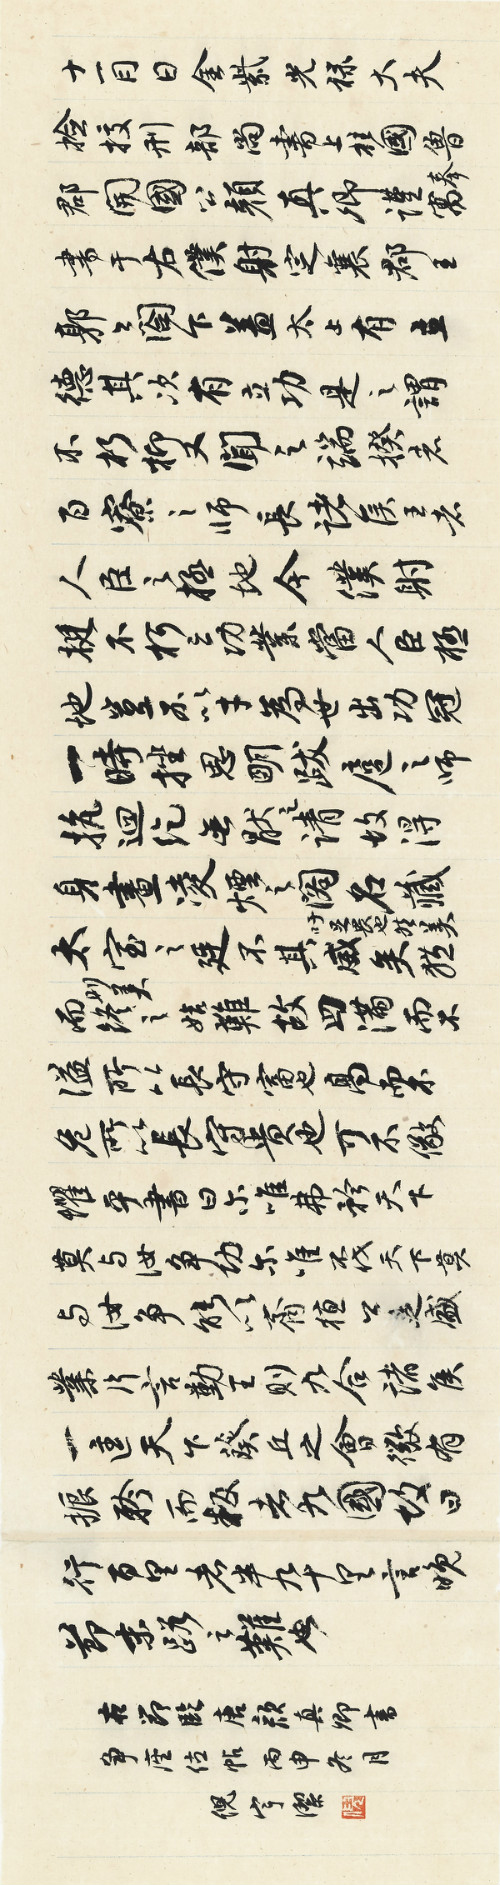 十一月日金紫光祿大夫
撿挍刑部尚書上柱國魯
郡開國公顏真卿謹奉寓
書于右僕射定襄郡王
郭公閤下蓋太上有立
德其次有立功是之謂
不朽抑又聞之端揆者
百寮之師長諸侯王者
人臣之極地今僕射
挺不朽之功業當人臣極
地豈不以才為世出功冠
一時挫思明跋扈之師
抗迴紇無厭之請故得
身畫凌煙之閣名藏
吁足畏也然美
太室之廷不其威矣
則美矣
而終之始難故曰滿而不
溢所以長守富也高而不
危所以長守貴也可不儆
懼乎書曰爾唯弗矜天下
莫與汝爭功爾唯不伐天下莫
與汝爭能以齊桓公之盛
業片言勤王則九合諸侯
一匡天下葵丘之會微有
振矜而叛者九國故曰
行百里者半九十里言晚
節末路之難也
右節臨唐顏真卿書
爭座位帖丙申冬月
倪